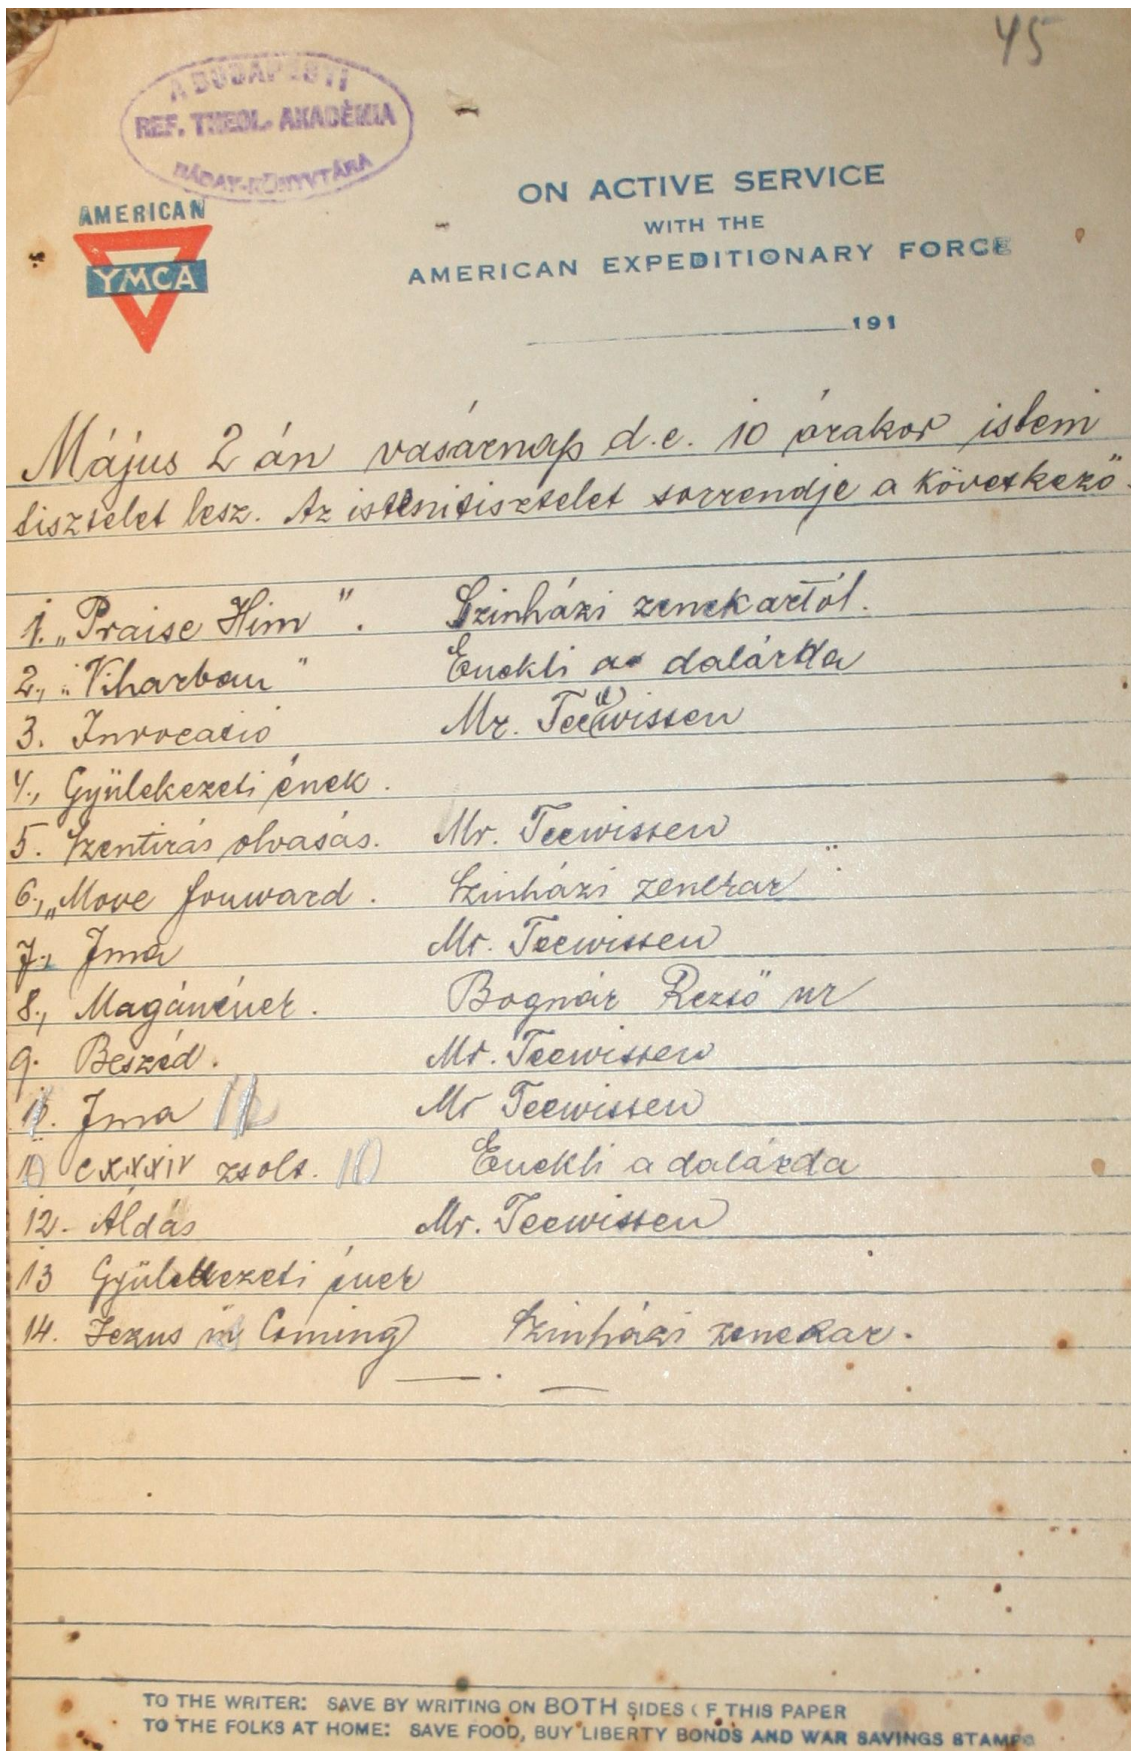 45
A BUDAPESTI
REF. THEOL. AKADÉMIA
RÁDAY-KÖNYVTÁRA
AMERICAN
YMCA
ON ACTIVE SERVICE
WITH THE
AMERICAN EXPEDITIONARY FORCE
191
Május 2 án vasárnap d.e. 10 órakor isteni
tisztelet lesz. Az istenitisztelet sorrendje a következő.
1. „Praise Him". Szinházi zenekartól.
2., „Viharban" Énekli a dalárda
3. Invocació Mr. Teewissen
4., Gyülekezeti ének.
5. Szentirás olvasás. Mr. Teewissen
6., „Move forward. Szinházi zenekar"
7., Ima Mr. Teewissen
8., Magánének. Bognár Rezső ur
9. Beszéd. Mr. Teewissen
Ima 11 Mr Teewissen
CXXXIV zsolt. 10 Énekli a dalárda
12. Áldás Mr. Teewissen
13 Gyülekezeti ének
14. Jezus is Coming Szinházi zenekar.
TO THE WRITER: SAVE BY WRITING ON BOTH SIDES OF THIS PAPER
TO THE FOLKS AT HOME: SAVE FOOD, BUY LIBERTY BONDS AND WAR SAVINGS STAMPS